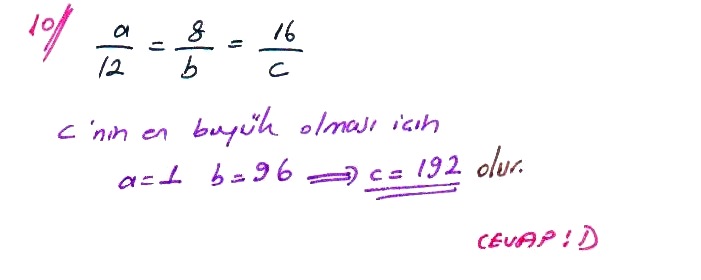 10/ a/12 = 8/b = 16/c
c'nin en büyük olması için
a=1 b=96 ⟹ c=192 olur.
CEVAP: D